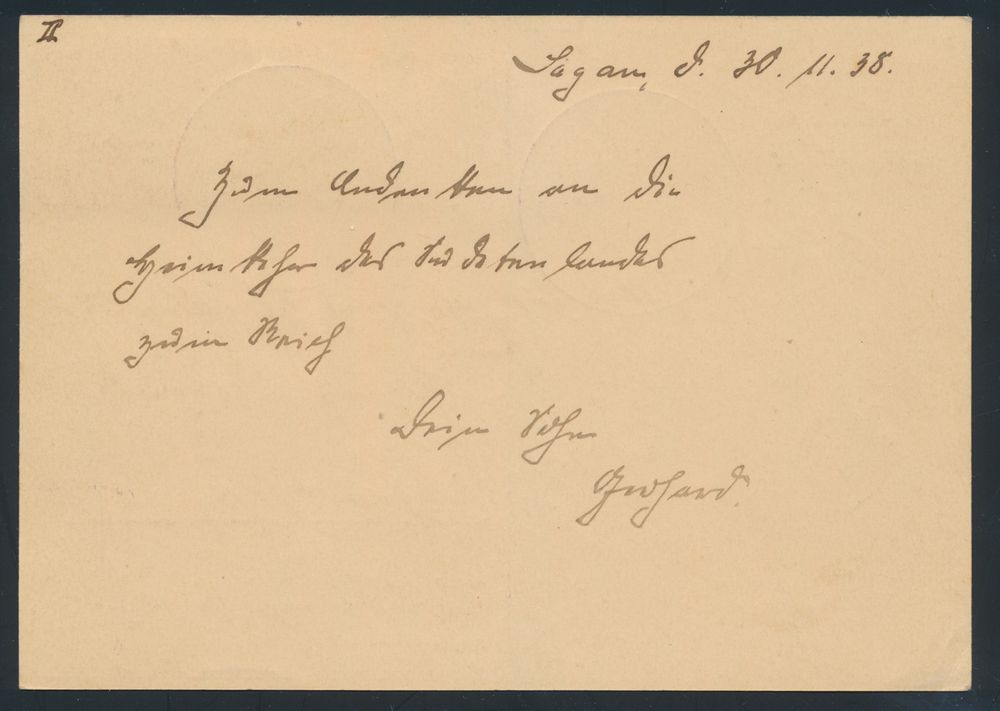 II
Sagan, d. 30. 11. 38.
Zum Andenken an die
Heimkehr des Sudetenlandes
zum Reich
Dein Sohn
Gerhard.